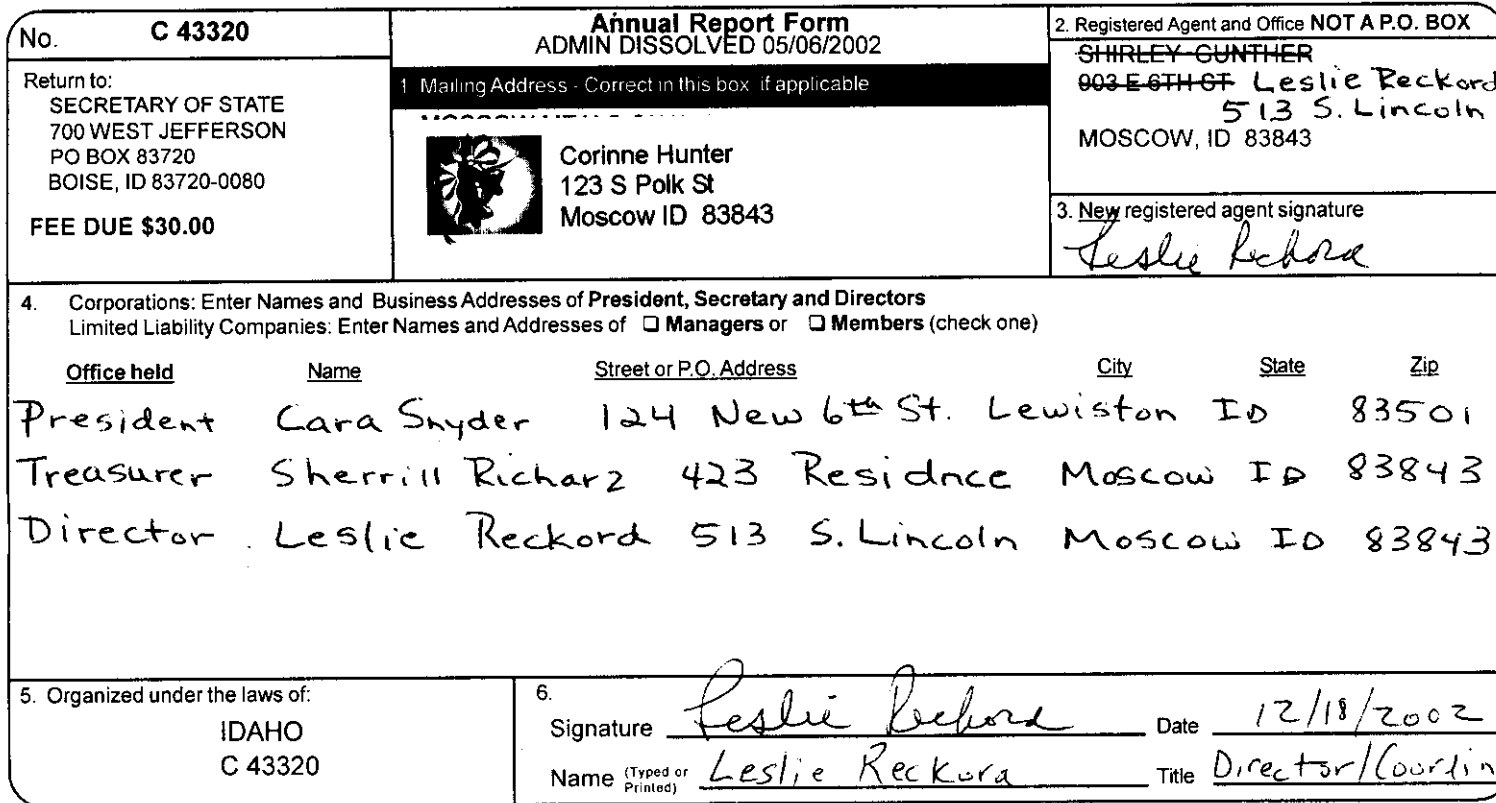 No. C 43320
Return to:
SECRETARY OF STATE
700 WEST JEFFERSON
PO BOX 83720
BOISE, ID 83720-0080
FEE DUE $30.00
Annual Report Form
ADMIN DISSOLVED 05/06/2002
1 Mailing Address - Correct in this box if applicable
Corinne Hunter
123 S Polk St
Moscow ID 83843
2. Registered Agent and Office NOT A P.O. BOX
SHIRLEY GUNTHER
903 E 6TH ST Leslie Reckord
513 S. Lincoln
MOSCOW, ID 83843
3. New registered agent signature
Leslie Reckord
4. Corporations: Enter Names and Business Addresses of President, Secretary and Directors
Limited Liability Companies: Enter Names and Addresses of ❑ Managers or ❑ Members (check one)
Office held Name Street or P.O. Address City State Zip
President Cara Snyder 124 New 6th St. Lewiston ID 83501
Treasurer Sherrill Richarz 423 Residnce Moscow ID 83843
Director Leslie Reckord 513 S. Lincoln Moscow ID 83843
5. Organized under the laws of:
IDAHO
C 43320
6.
Signature Leslie Reckord Date 12/18/2002
Name (Typed or Printed) Leslie Reckord Title Director/Coordin